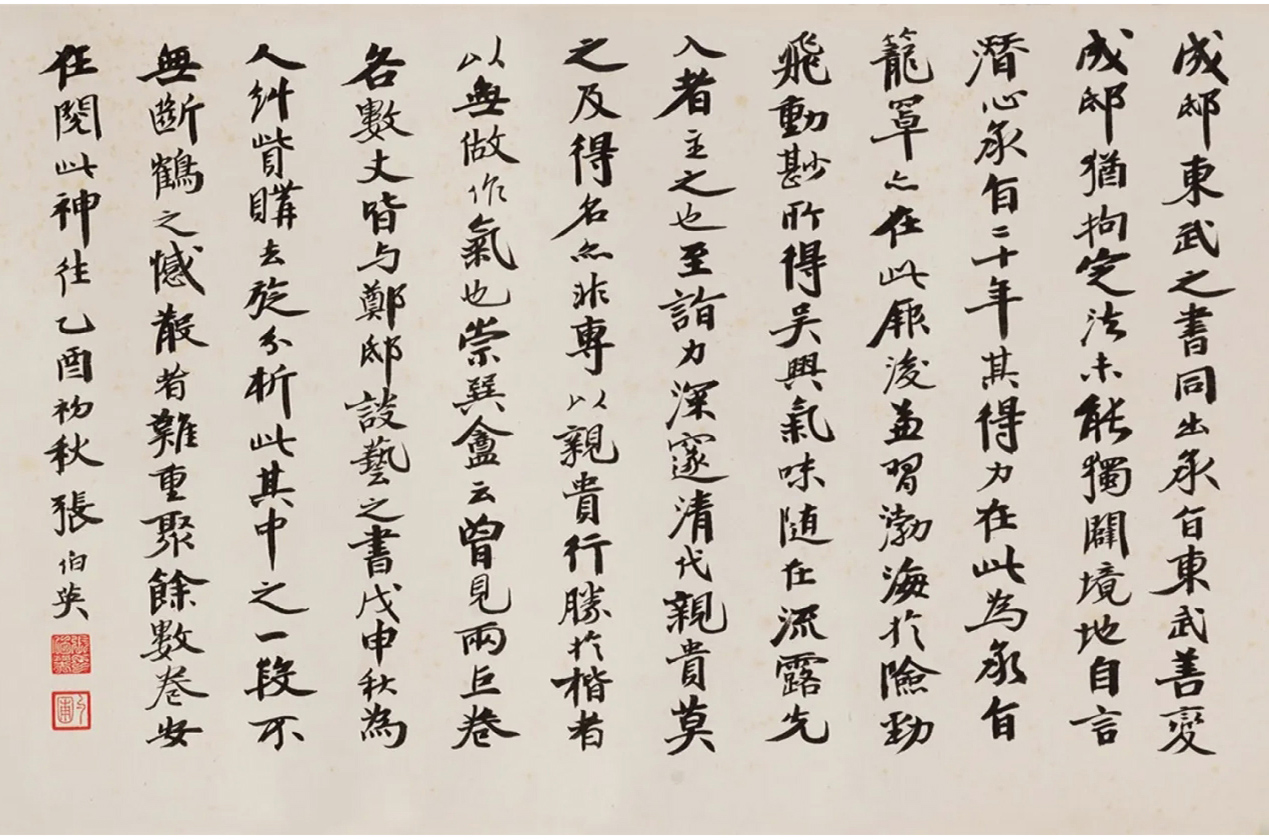 成邸東武之書同出永旨東武善變
成邸猶拘定法未能獨闢境地自言
潛心永旨二十年其得力在此為永旨
籠罩亦在此厥後益習渤海於險勁
飛動尠所得吳興氣味随在流露先
入者主之也至詣力深邃清代親貴莫
之及得名亦非專以親貴行勝於楷者
以無做作氣也崇巽盦云曾見兩巨卷
各數丈皆与鄭邸談藝之書戊申秋為
人糾貲購去旋分析此其中之一段不
無斷鶴之憾散者難重聚餘數卷安
在閱此神往乙酉初秋張伯英